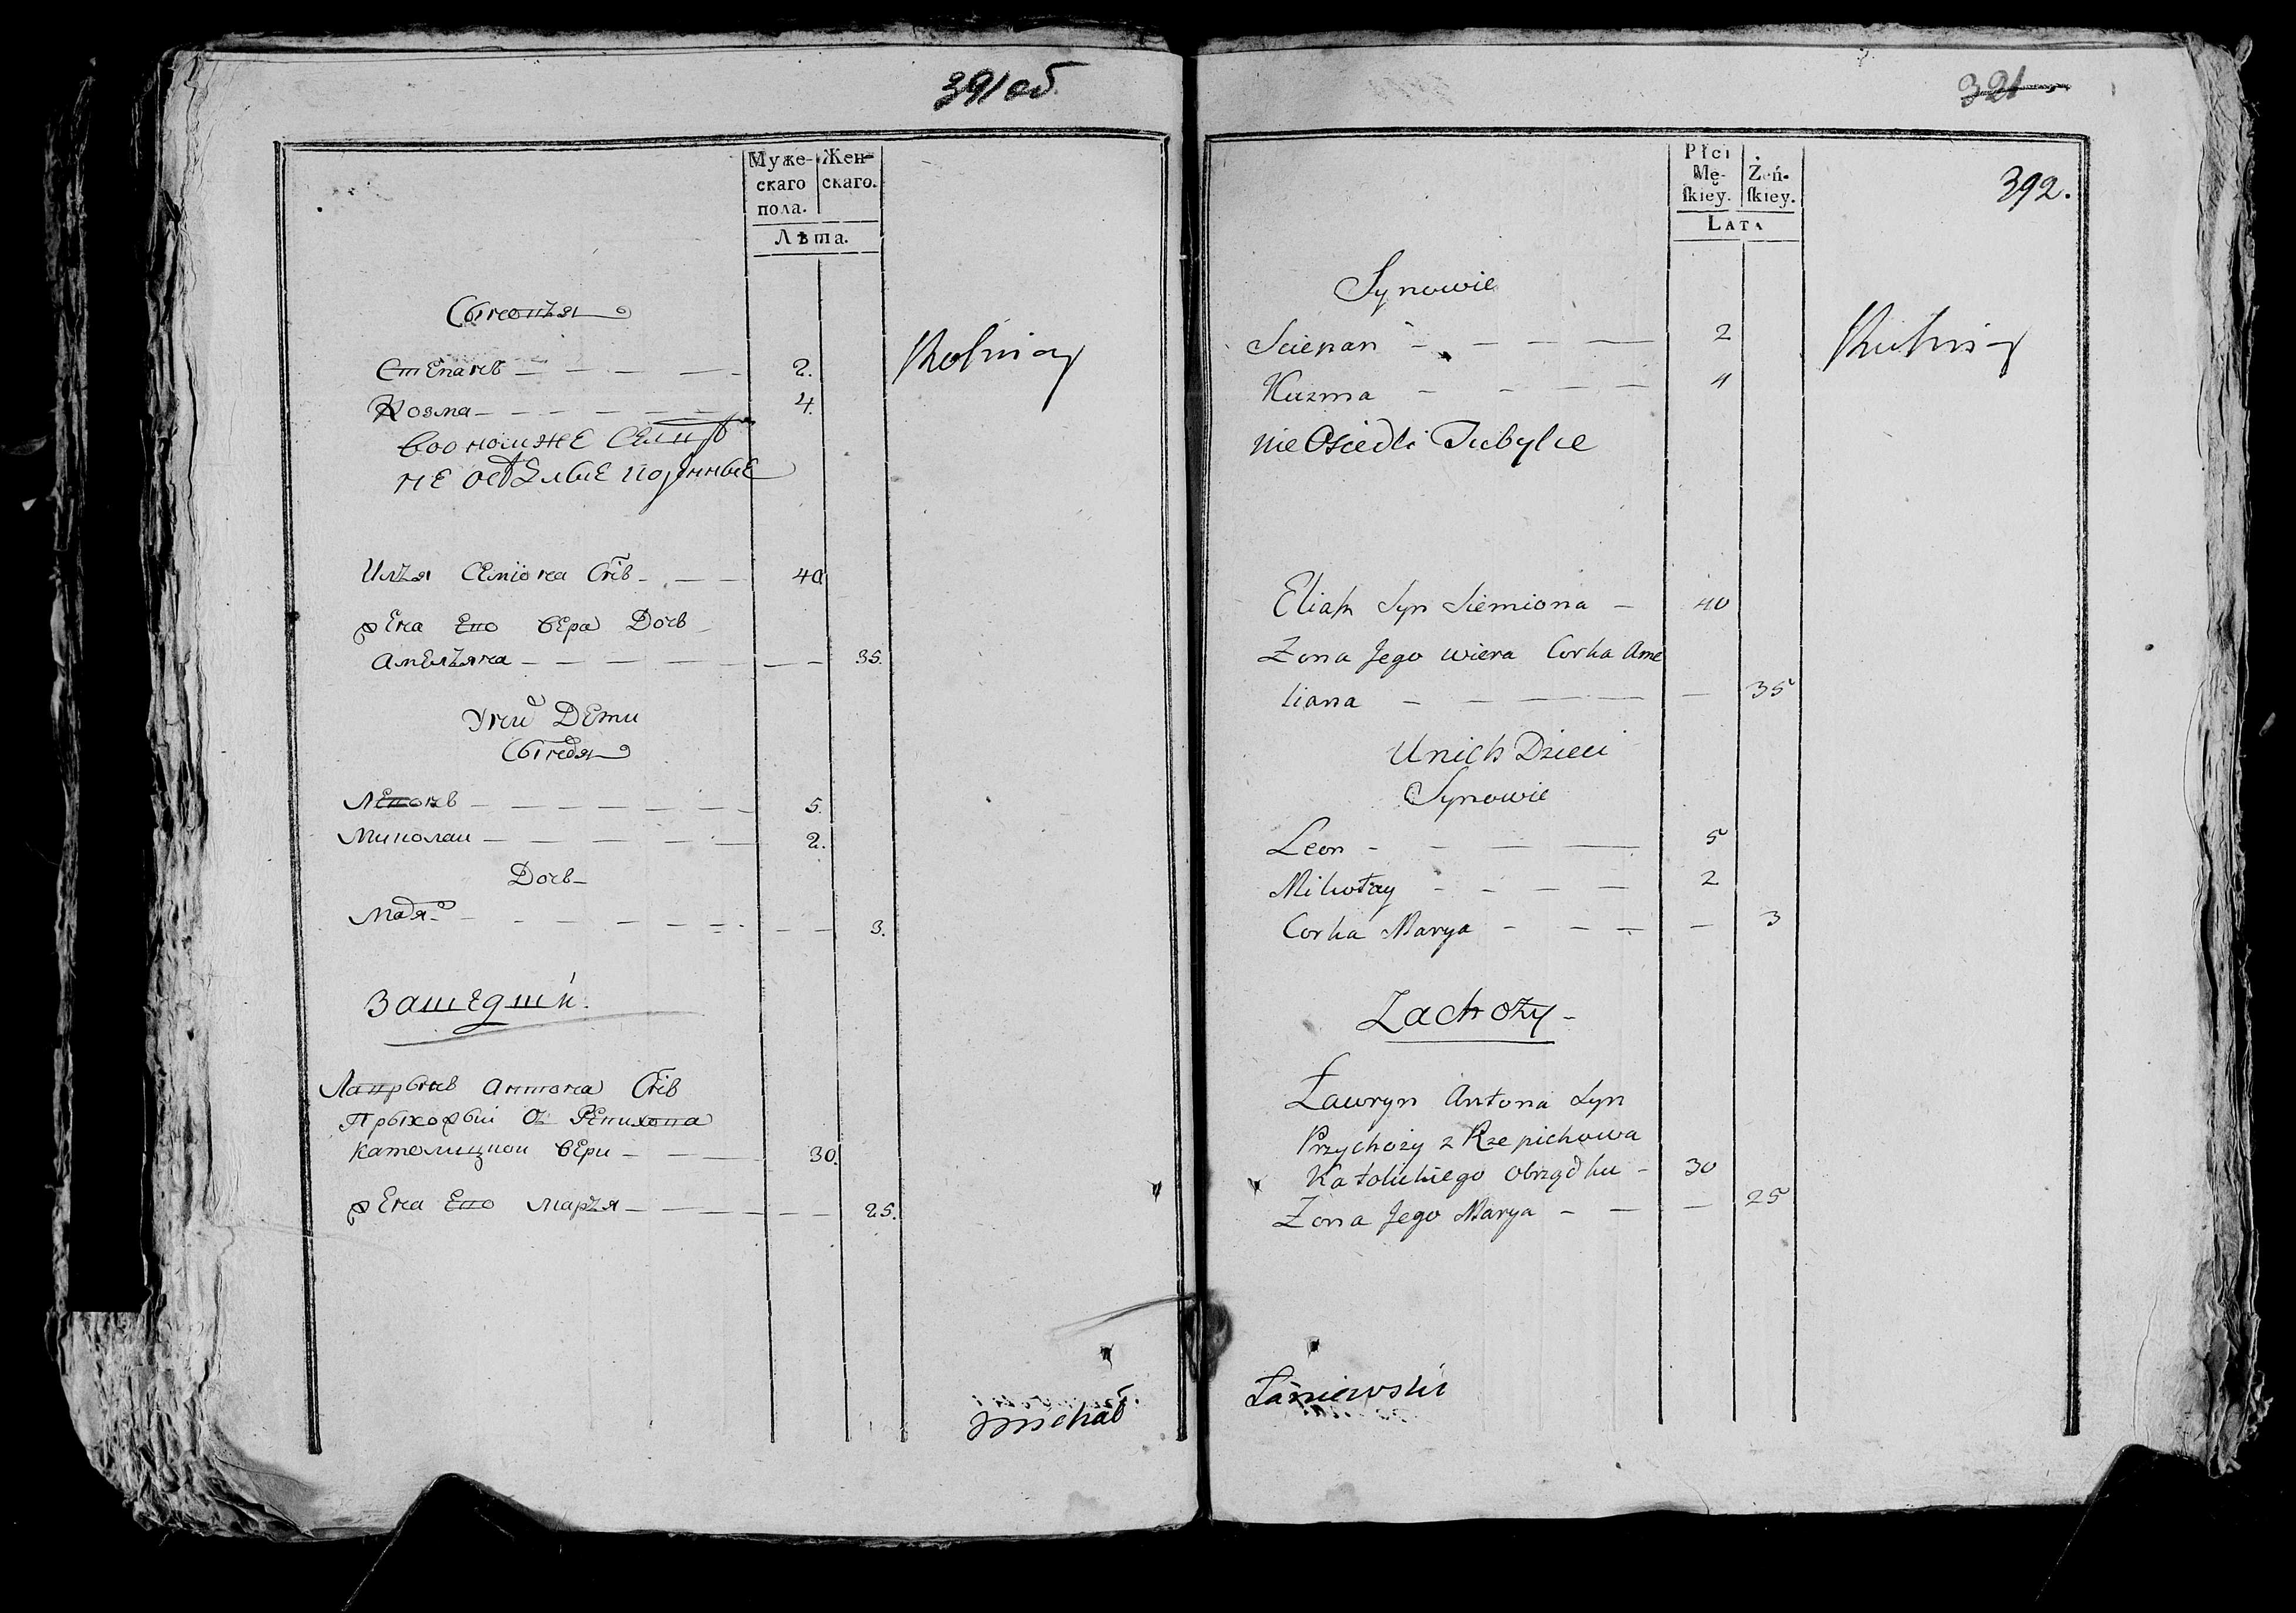 391 об
Муже-
скаго
пола.
Жен-
скаго.
Лѣта.
Сыновья
Степанъ 2.
Козма 4.
не оседлые
Илья Семiона Снъ 40
жена Ево Вера Дочь
Амельяна 35.
У них Дети
Сыновья
Левонъ 5.
Миколаи 2.
Дочь
Марья 3.
Зашедшiи.
Лаврынъ Антона Снъ
Прыхожый Оз Репихова
Католицкои Веры 30.
жена Ево Марья 25.
Michał
321
392.
Płci
Mę-
skiey.
Żeń-
skiey.
LATA
Synowie
Sciepan 2
Kuzma 4
nie Osiedli Tubylce
Rolnicy
Eliasz Syn Siemiona 40
Zona Jego Wiera Corka Ame
liana 35
U nich Dzieci
Synowie
Leon 5
Mikołay 2
Corka Marya 3
Zachoży
Ławryn Antona Syn
Przychoży z Rzepichowa
Katolickiego Obrządku 30
Zona Jego Marya 25
Łaniewski